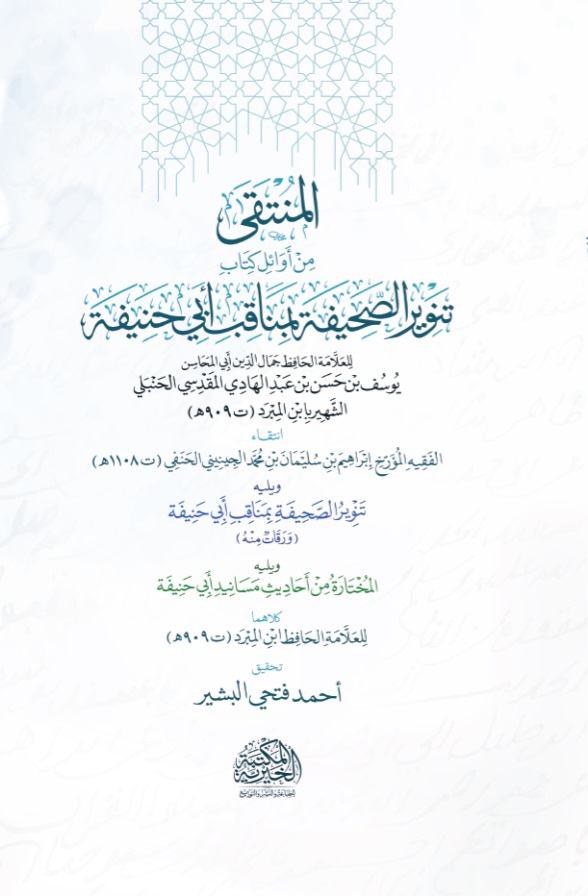 المُنتَقَى
مِنْ أَوَائِلِ كِتَابِ
تَنْوِيرُ الصَّحِيفَةِ بِمَنَاقِبِ أَبِي حَنِيفَة
لِلعَلَّامَةِ الحَافِظِ جَمَالِ الدِّينِ أَبِي المَحَاسِن
يُوسُفَ بْنِ حَسَنِ بْنِ عَبْدِ الهَادِي المَقْدِسِي الحَنْبَلِي
الشَّهِيرِ بِابْنِ المِبْرَد (ت ٩٠٩هـ)
انتقاء
الفَقِيهِ المُؤَرِّخِ إِبْرَاهِيمَ بْنِ سُلَيْمَانَ بْنِ مُحَمَّدٍ الجِينِينِي الحَنَفِي (ت ١١٠٨هـ)
ويليه
تَنْوِيرُ الصَّحِيفَةِ بِمَنَاقِبِ أَبِي حَنِيفَة
(وَرَقَاتٌ مِنْهُ)
ويليه
المُخْتَارَةُ مِنْ أَحَادِيثِ مَسَانِيدِ أَبِي حَنِيفَة
كلاهما
لِلعَلَّامَةِ الحَافِظِ ابْنِ المِبْرَد (ت ٩٠٩هـ)
تحقيق
أحمد فتحي البشير
المكتبة
الخيرية
للطباعة والنشر والتوزيع